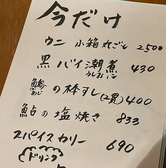 今だけ
ウニ 小箱丸ごと 2500
黒バイ潮煮 430
鯵の棒すし(2貫) 400
鮎の塩焼き 833
スパイスカリー 690
ドリンク